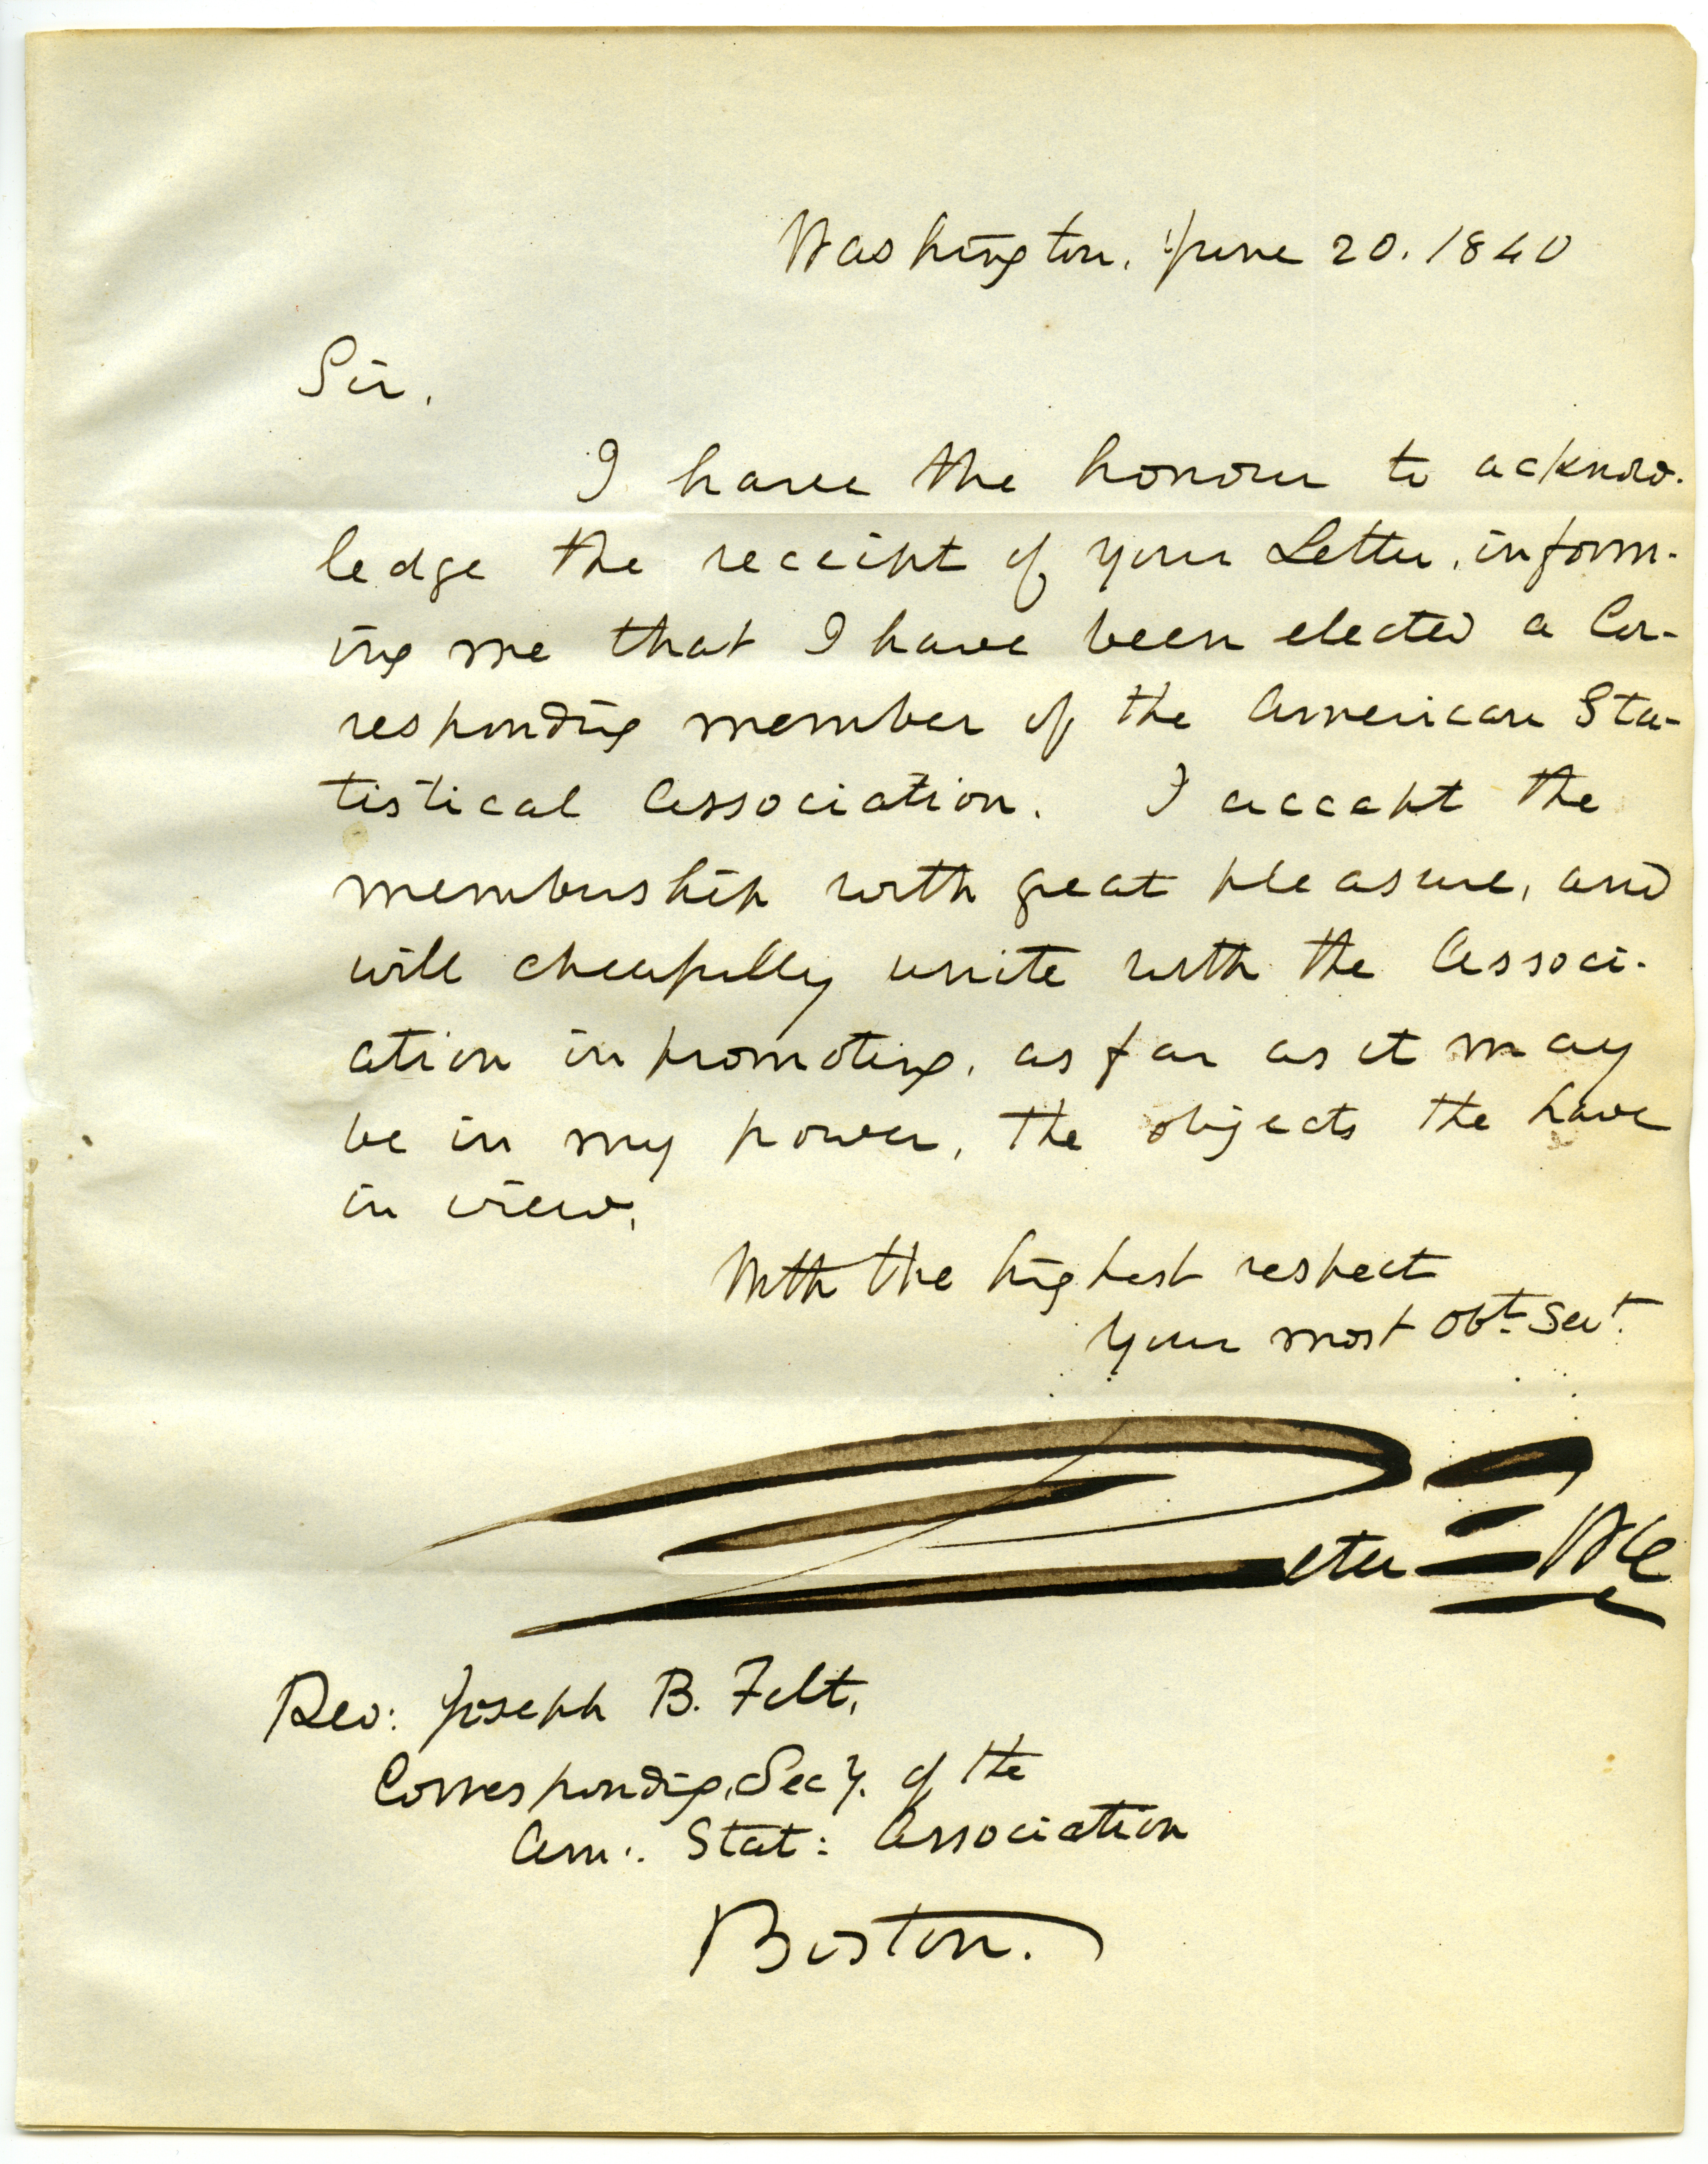 Washington, June 20. 1840
Sir,
I have the honour to acknow-
ledge the receipt of your Letter, inform-
ing me that I have been elected a Cor-
responding member of the American Sta-
tistical Association. I accept the
membership with great pleasure, and
will cheerfully unite with the Associ-
ation in promoting, as far as it may
be in my power, the objects the have
in view,
With the highest respect
Your most Obt. Sevt.
Rev: Joseph B. Felt,
Corresponding Secy. of the
Am: Stat: Association
Boston.